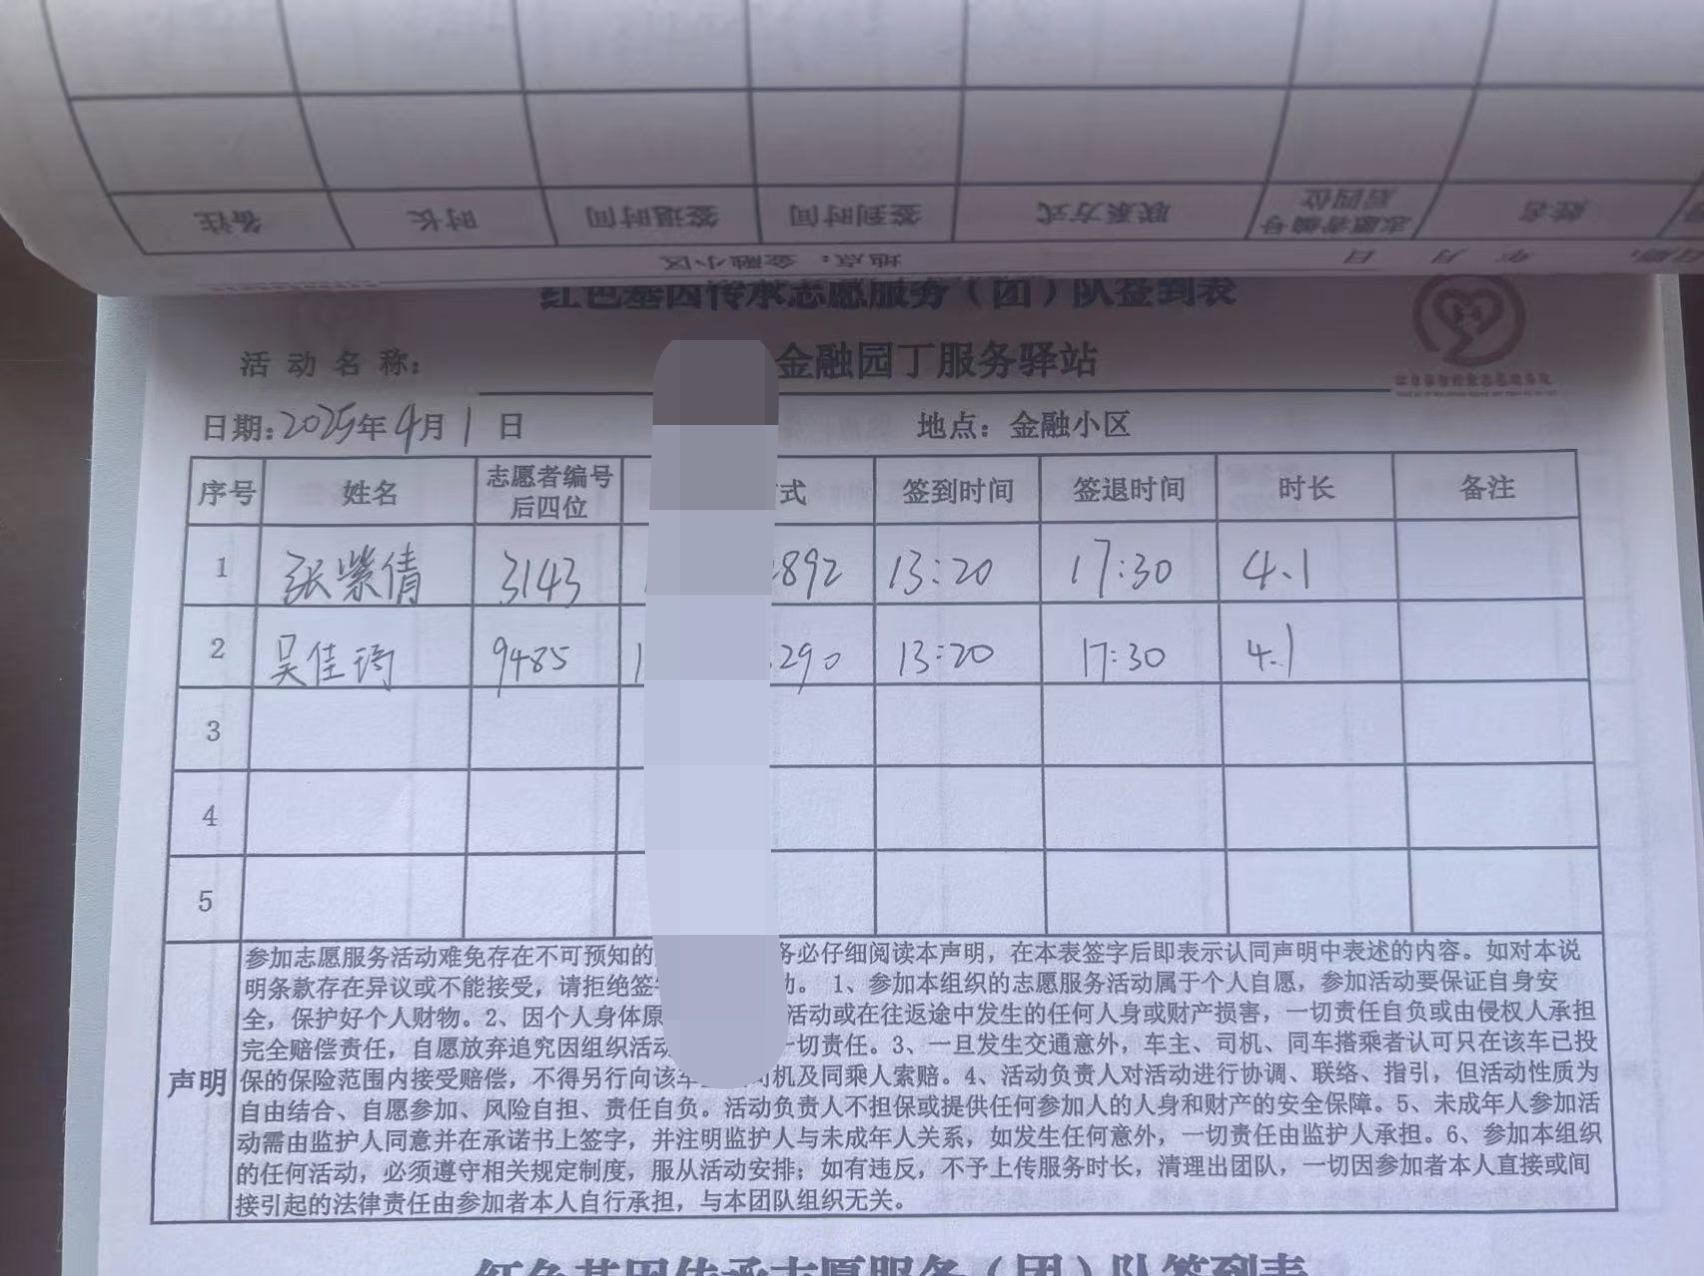 备注 时长 签退时间 签到时间 联系方式 志愿者编号后四位 姓名
地点：金融小区 年 月 日
红色基因传承志愿服务（团）队签到表
活动名称： 金融园丁服务驿站
日期：2025年4月1日 地点：金融小区
序号 姓名 志愿者编号后四位 式 签到时间 签退时间 时长 备注
1 张紫倩 3143 892 13:20 17:30 4.1
2 吴佳琦 9485 1 290 13:20 17:30 4.1
3
4
5
声明
参加志愿服务活动难免存在不可预知的 务必仔细阅读本声明，在本表签字后即表示认同声明中表述的内容。如对本说
明条款存在异议或不能接受，请拒绝签 动。 1、参加本组织的志愿服务活动属于个人自愿，参加活动要保证自身安
全，保护好个人财物。2、因个人身体原 活动或在往返途中发生的任何人身或财产损害，一切责任自负或由侵权人承担
完全赔偿责任，自愿放弃追究因组织活动 一切责任。3、一旦发生交通意外，车主、司机、同车搭乘者认可只在该车已投
保的保险范围内接受赔偿，不得另行向该车 司机及同乘人索赔。4、活动负责人对活动进行协调、联络、指引，但活动性质为
自由结合、自愿参加、风险自担、责任自负。活动负责人不担保或提供任何参加人的人身和财产的安全保障。5、未成年人参加活
动需由监护人同意并在承诺书上签字，并注明监护人与未成年人关系，如发生任何意外，一切责任由监护人承担。6、参加本组织
的任何活动，必须遵守相关规定制度，服从活动安排；如有违反，不予上传服务时长，清理出团队，一切因参加者本人直接或间
接引起的法律责任由参加者本人自行承担，与本团队组织无关。
红色基因传承志愿服务（团）队签到表